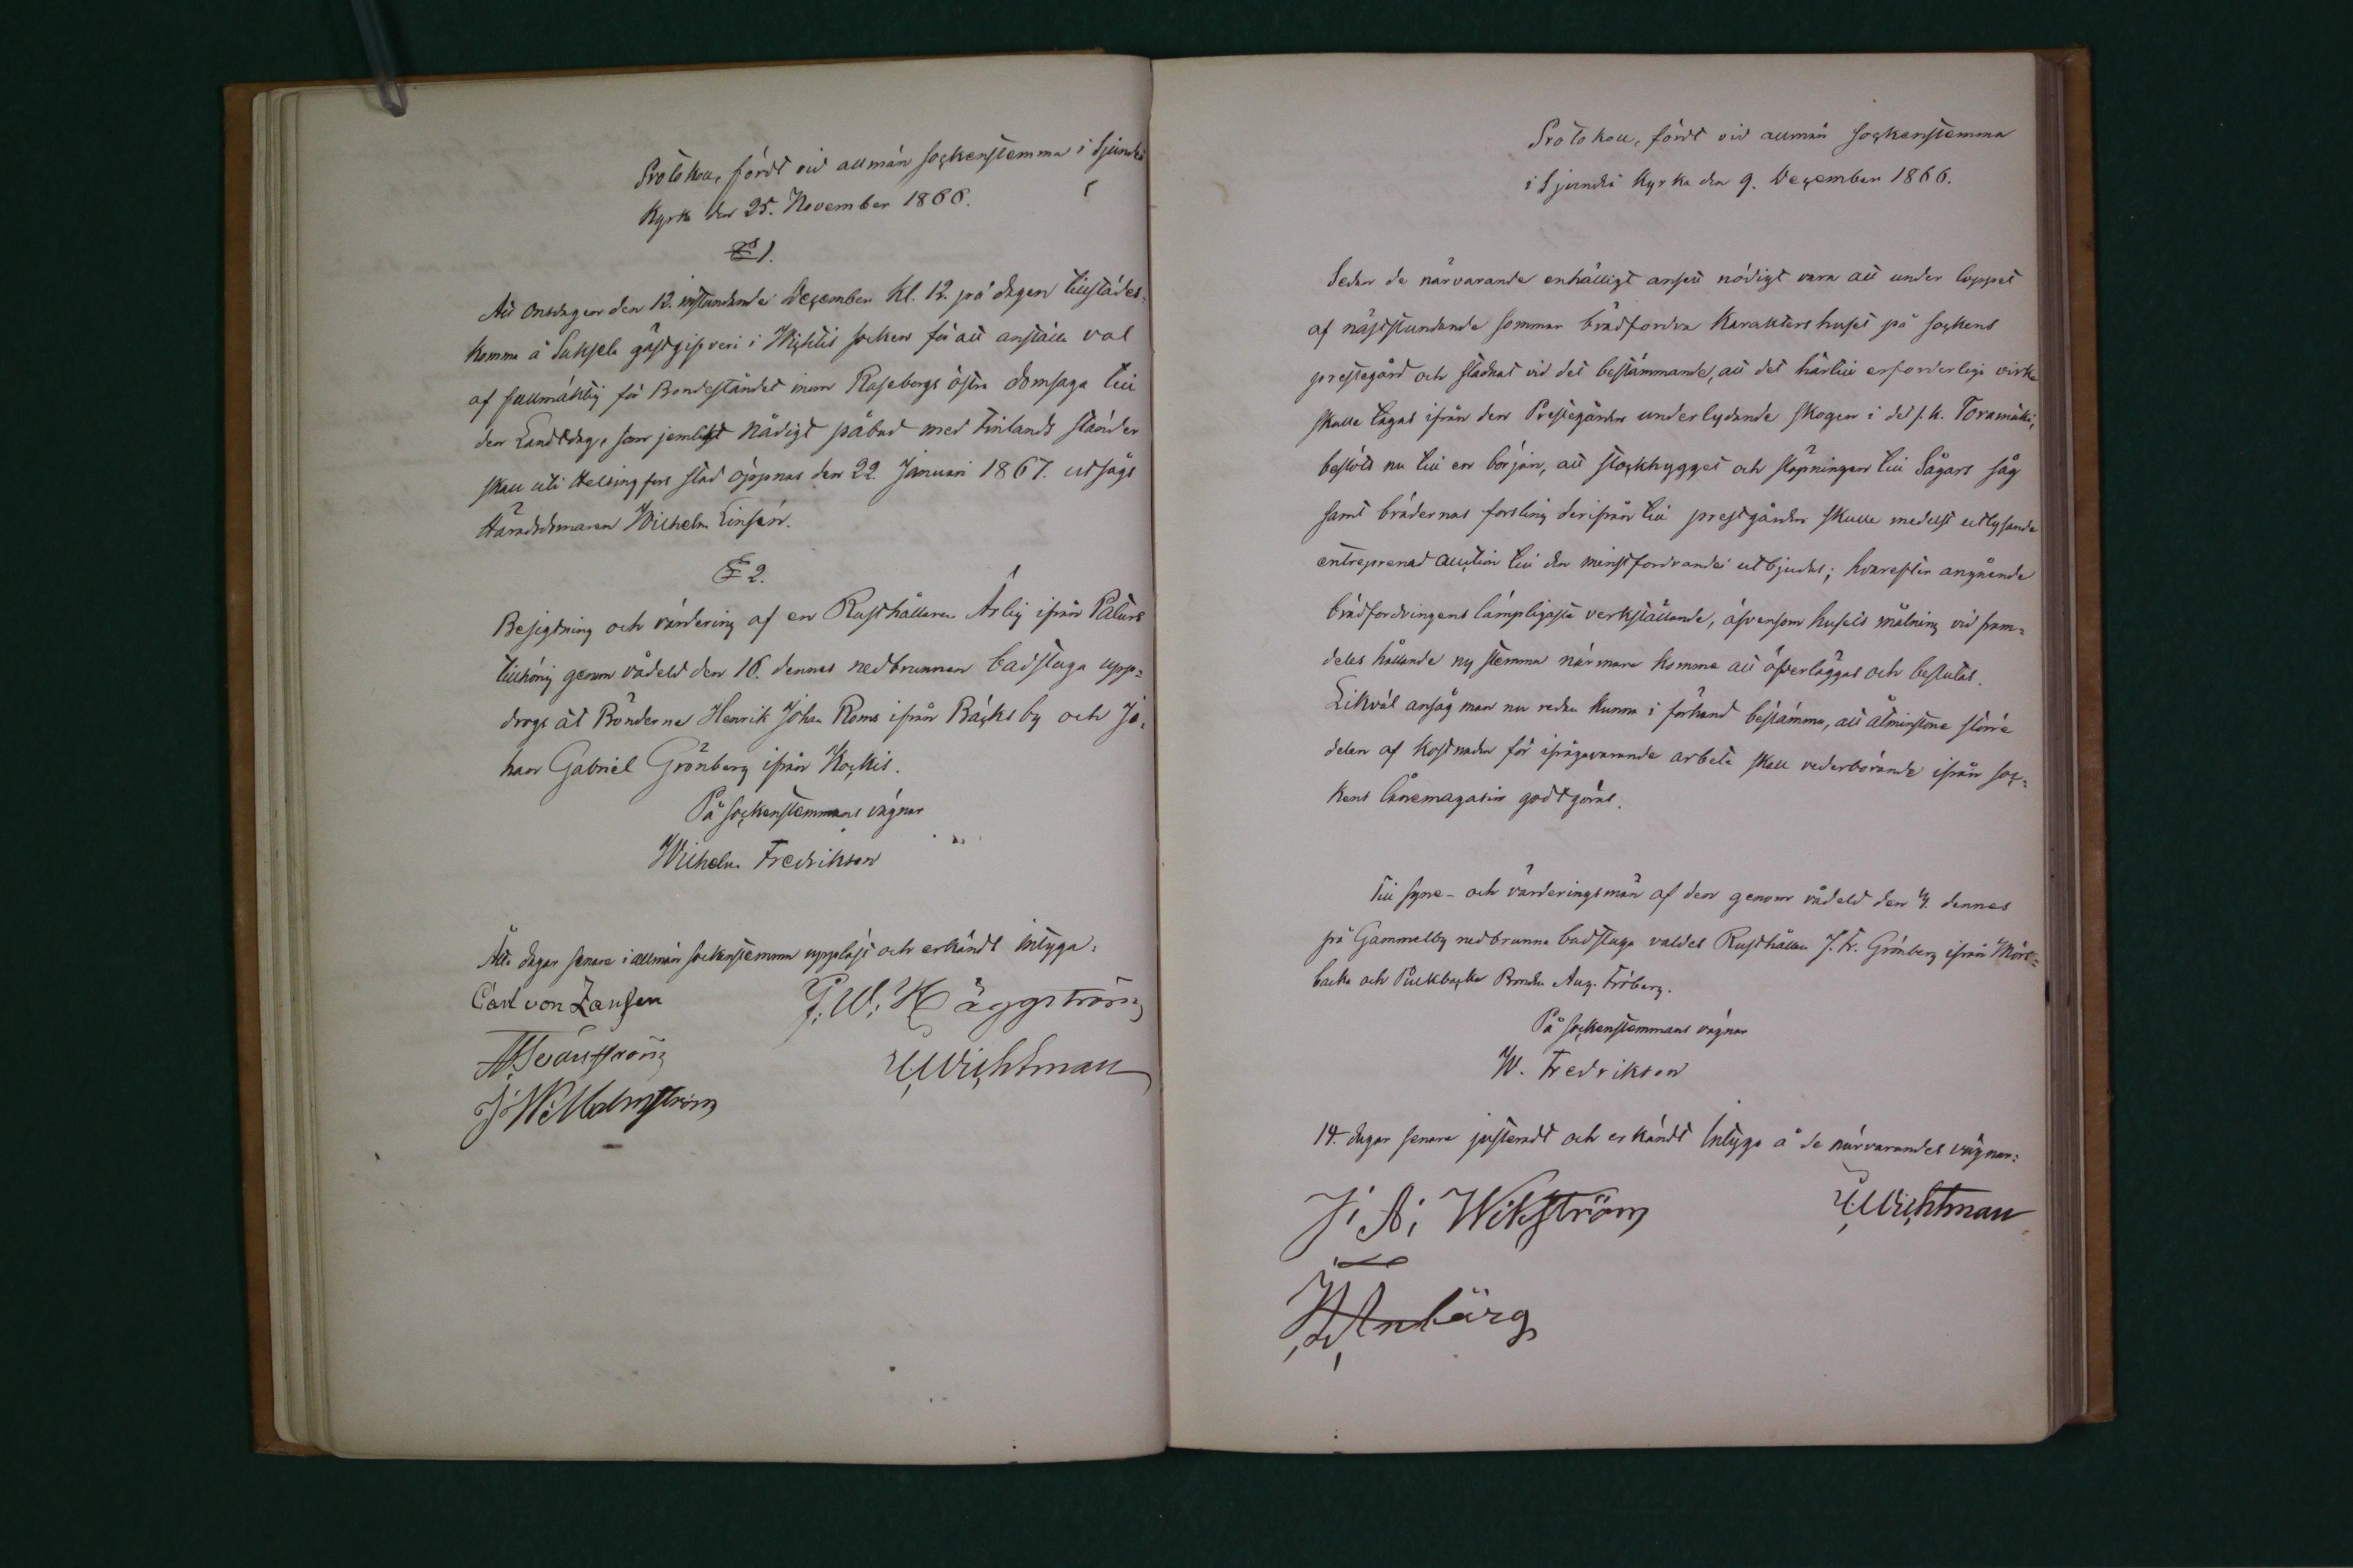 Protokoll, fördt vid allmän sockenstemma i Sjundeå
Kyrka den 25. November 1866.
§ 1.
Att Onsdagen den 12. instundande December kl. 12. på dagen tillstädes-
komma å Suksela gästgifveri i Wichtis socken för att anställa val
af fullmäktig för Bondeståndet inom Raseborgs östra domsaga till
den Landtdag, som jemlikt Nådigt påbud med Finlands ständer
skall uti Helsingfors stad öppnas den 22. Januari 1867. utsågs
Häradsdomaren Wilhelm Linsén.
§ 2.
Besigtning och värdering af en Rusthållaren Ärlig ifrån Pålars
tillhörig genom vådeld den 16. dennes nedbrunnen badstuga upp-
drogs åt Bönderna Henrik Johan Roms ifrån Bäcks by och Jo-
han Gabriel Grönberg ifrån Kockis.
På sockenstemmans vägnar
Wilhelm Fredrikson
Åtta dagar senare i allmän sockenstemma uppläst och erkändt intyga:
Carl von Zansen
G. W. Häggström
A. Teänström
E. Wichtman
J. W. Malmström
Protokoll, fördt vid allmän sockenstemma
i Sjundeå Kyrka den 9. December 1866.
Sedan de närvarande enhälligt ansett nödigt vara att under loppet
af näststundande sommar brädfordra Karaktershuset på sockens
prestegård och stadnat vid det bestämmande, att det härtill erforderliga virke
skulle tagas ifrån den Prestegården underlydande skogen i det s. k. Toramäki,
beslöts nu till en början, att stockhygget och släpningen till Sågars såg
samt brädernas forsling derifrån till prestgården skulle medelst utlysande
entreprenad auction till den minstfordrande utbjudas; hvarefter angående
brädfordringens lämpligaste verkställande, äfvensom husets målning vid fram-
deles hållande ny stemma närmare komme att öfverläggas och beslutas.
Likväl ansåg man nu redan kunna i förhand bestämma, att åtminstone större
delen af kostnaden för ifrågavarande arbete skall vederbörande ifrån soc-
kens lånemagasin godtgöras.
Till syne- och värderingsmän af den genom vådeld den 4. dennes
på Gammelby nedbrunna badstuga valdes Rusthållaren J. Fr. Grönberg ifrån Mörs-
backa och Purkbacka Bonden Aug. Fröberg.
På sockenstemmans vägnar
W. Fredrikson
14. dagar senare justeradt och erkändt intyga å de närvarandes vägnar:
J. A. Wikström
E. Wichtman